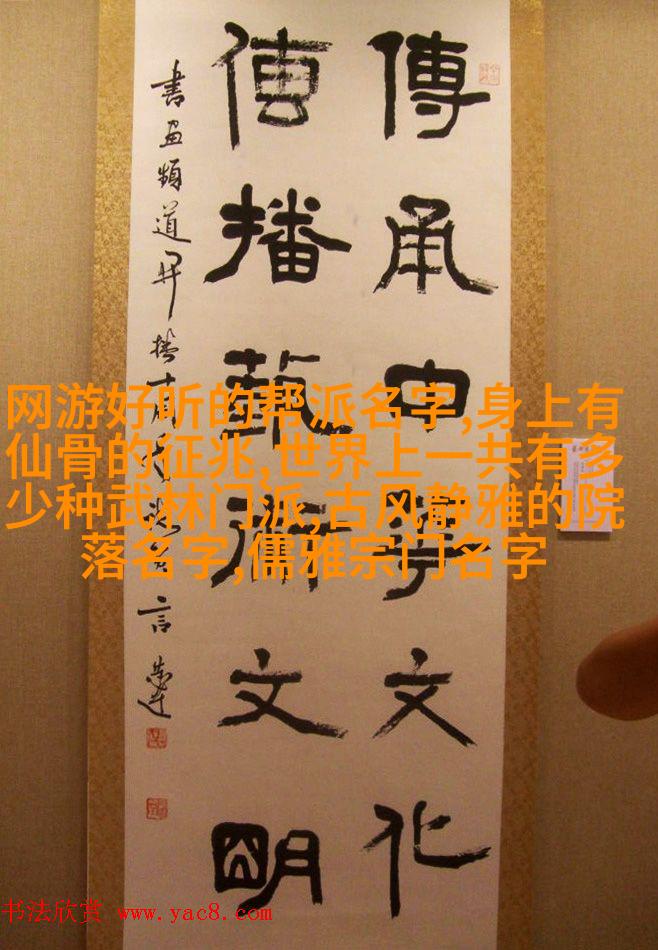 傳承中華文化
傳播藝術文明
書畫頻道開播十周年
言
网游好听的帮派名字,身上有
仙骨的征兆,世界上一共有多
少种武林门派,古风静雅的院
落名字,儒雅宗门名字
书法欣赏 www.yac8.com